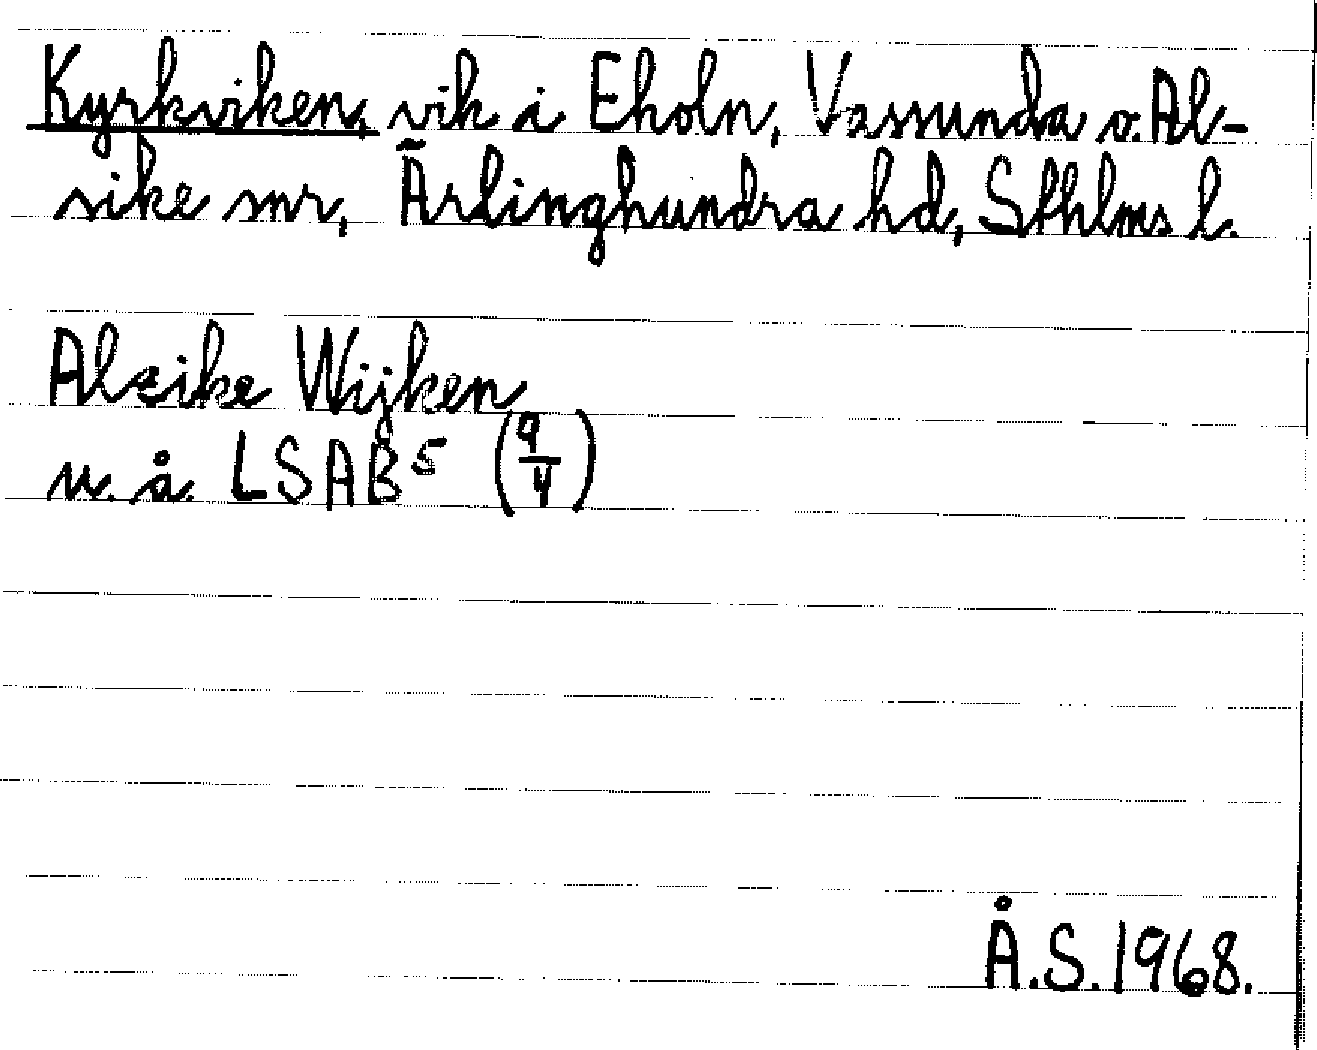 Kyrkviken, vik i Ekoln, Vassunda o. Al-
sike snr, Ärlinghundra hd, Sthlms l.
Alsike Wijken
u. å. LSA B5 (9/4)
Å.S. 1968.